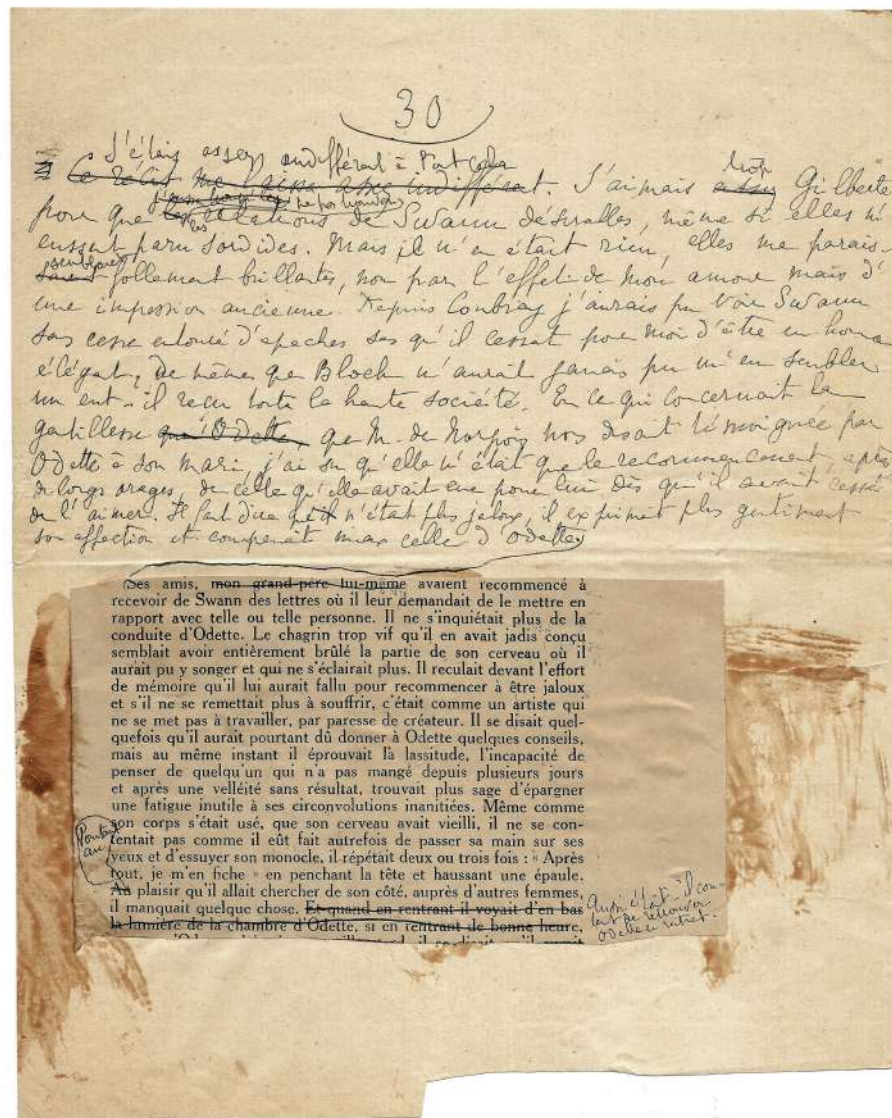 30
J'étais assez indifférent à tout cela
Ce récit me laissa assez indifférent. J'aimais trop Gilberte
pour que les relations de Swann désirables, même si elles m'
eussent paru sordides. Mais il n'en était rien, elles me parais-
semblaient follement brillantes, non par l'effet de mon amour mais d'
une impression ancienne. Depuis Combray j'aurais pu voir Swann
sans cesse entouré d'apaches sans qu'il cessât pour moi d'être un homme
élégant, de même que Bloch n'aurait jamais pu m'en sembler
un eut-il reçu toute la haute société. En ce qui concernait la
gentillesse qu'Odette, que M. de Norpois nous disait témoignée par
Odette à son mari, j'ai su qu'elle n'était que le recommencement, après
de longs orages, de celle qu'elle avait eue pour lui dès qu'il avait cessé
de l'aimer. Il faut dire qu'il n'était plus jaloux, il exprimait plus gentiment
son affection et comprenait mieux celle d'Odette
Ses amis, mon grand-père lui-même avaient recommencé à
recevoir de Swann des lettres où il leur demandait de le mettre en
rapport avec telle ou telle personne. Il ne s'inquiétait plus de la
conduite d'Odette. Le chagrin trop vif qu'il en avait jadis conçu
semblait avoir entièrement brûlé la partie de son cerveau où il
aurait pu y songer et qui ne s'éclairait plus. Il reculait devant l'effort
de mémoire qu'il lui aurait fallu pour recommencer à être jaloux
et s'il ne se remettait plus à souffrir, c'était comme un artiste qui
ne se met pas à travailler, par paresse de créateur. Il se disait quel-
quefois qu'il aurait pourtant dû donner à Odette quelques conseils,
mais au même instant il éprouvait la lassitude, l'incapacité de
penser de quelqu'un qui n'a pas mangé depuis plusieurs jours
et après une velléité sans résultat, trouvait plus sage d'épargner
une fatigue inutile à ses circonvolutions inanitiées. Même comme
son corps s'était usé, que son cerveau avait vieilli, il ne se con-
tentait pas comme il eût fait autrefois de passer sa main sur ses
yeux et d'essuyer son monocle, il répétait deux ou trois fois : « Après
tout, je m'en fiche » en penchant la tête et haussant une épaule.
Pourtant
au
Au plaisir qu'il allait chercher de son côté, auprès d'autres femmes,
il manquait quelque chose. Et quand en rentrant il voyait d'en bas
la lumière de la chambre d'Odette, si en rentrant de bonne heure,
Aussi était-il con-
tent de retrouver
Odette en rentrant.